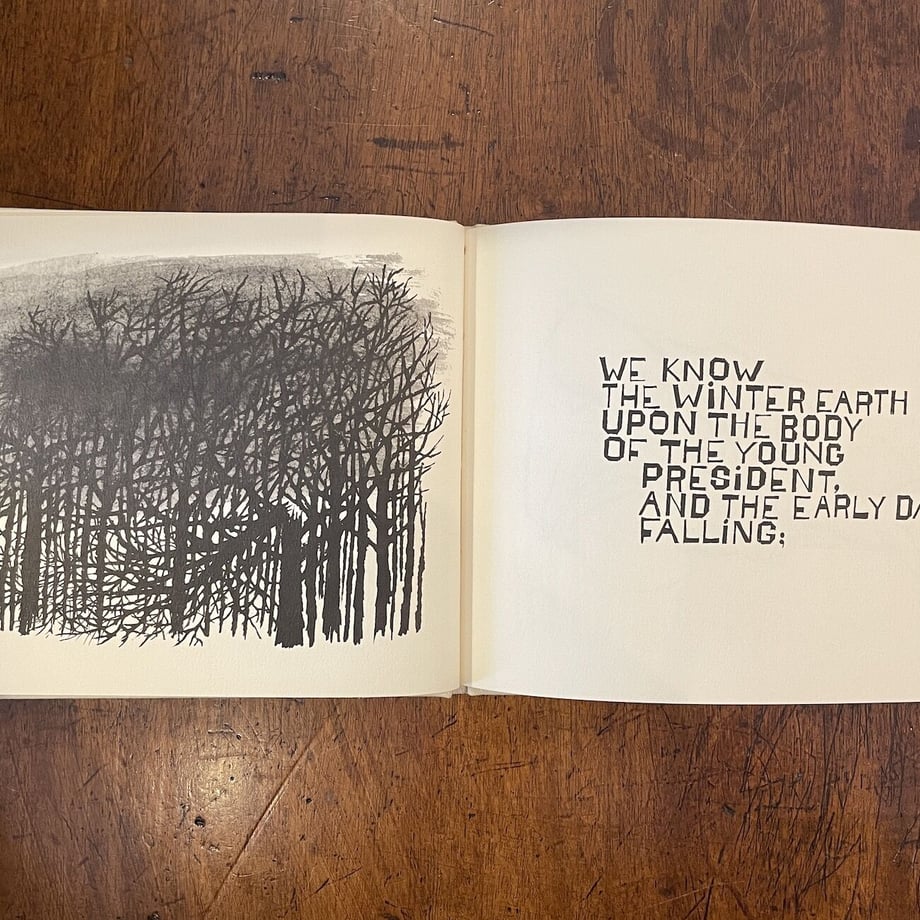 WE KNOW
THE WiNTER EARTH
UPON THE BODY
OF THE YOUNG
PRESiDENT,
AND THE EARLY
FALLiNG;